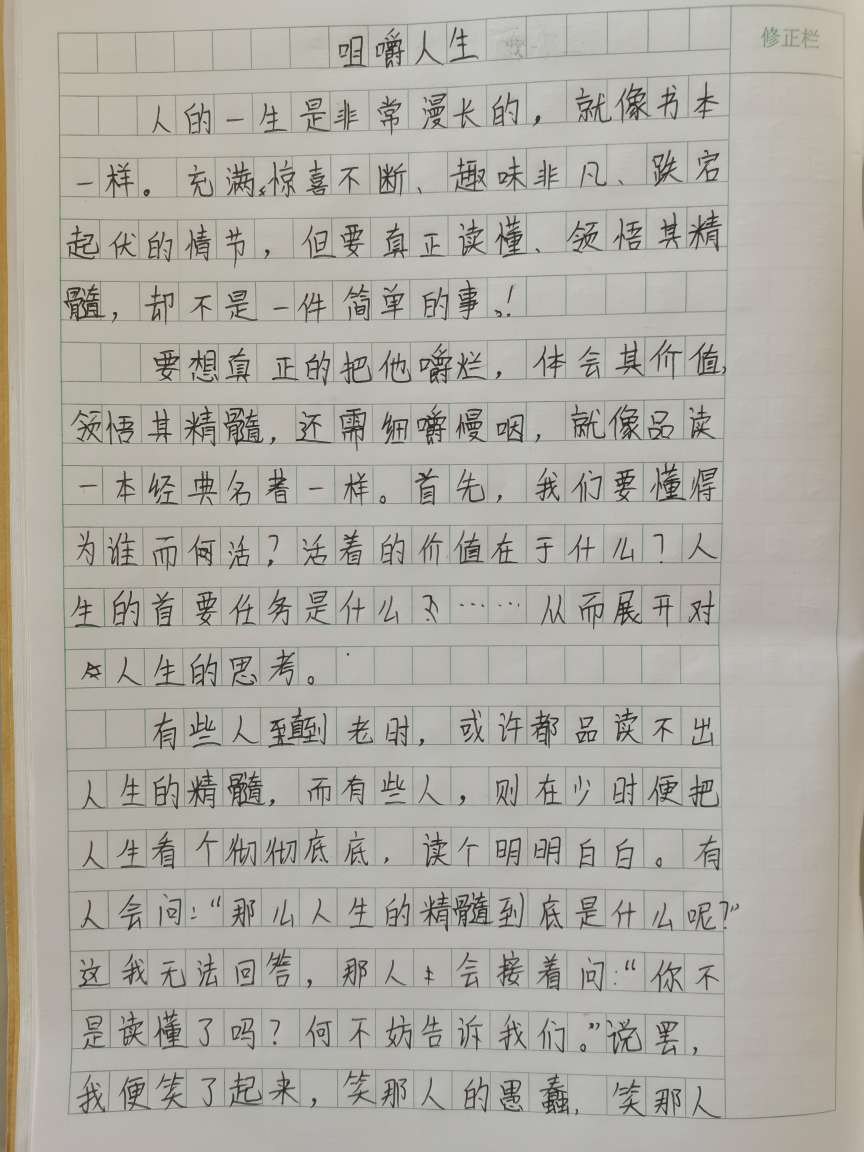 修正栏
咀嚼人生
人的一生是非常漫长的，就像书本
一样。充满惊喜不断、趣味非凡、跌宕
起伏的情节，但要真正读懂、领悟其精
髓，却不是一件简单的事。！
要想真正的把他嚼烂，体会其价值，
领悟其精髓，还需细嚼慢咽，就像品读
一本经典名著一样。首先，我们要懂得
为谁而何活？活着的价值在于什么？人
生的首要任务是什么？……从而展开对
人生的思考。
有些人至到老时，或许都品读不出
人生的精髓，而有些人，则在少时便把
人生看个彻彻底底，读个明明白白。有
人会问：“那么人生的精髓到底是什么呢？”
这我无法回答，那人会接着问：“你不
是读懂了吗？何不妨告诉我们。”说罢，
我便笑了起来，笑那人的愚蠢，笑那人